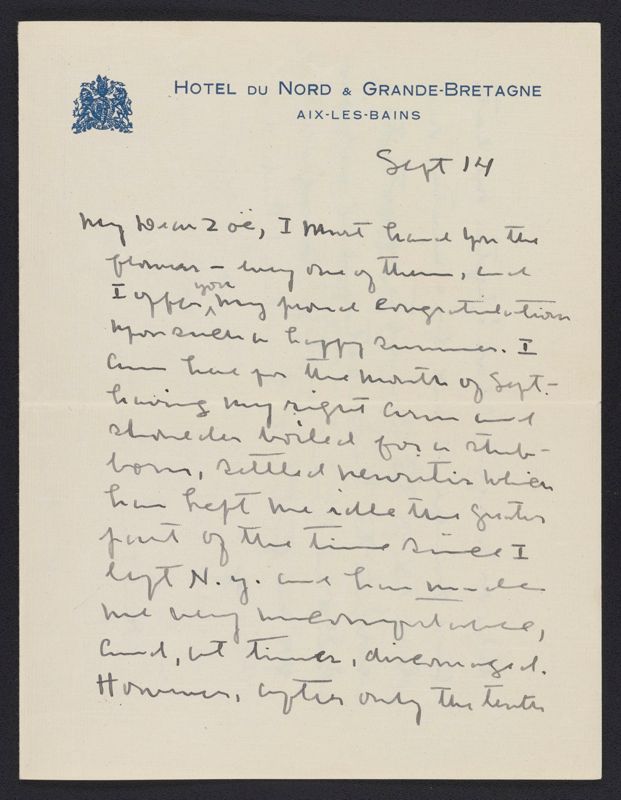 HOTEL DU NORD & GRANDE-BRETAGNE
AIX-LES-BAINS
Sept 14
My Dear Zoë, I must hand you the
flowers – every one of them, and
I offer you my proud congratulations
upon such a happy summer. I
am here for the month of Sept. –
having my right arm and
shoulder boiled for a stub-
born, settled neuritis which
has kept me idle the greater
part of the time since I
left N.Y. and has made
me very uncomfortable,
and, at times, discouraged.
However, after only the tenth